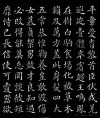 平章愛育黎首臣伏戎羌
遐邇壹體率賓歸王鳴鳳
在樹白駒食場化被草木
賴及萬方蓋此身髮四大
五常恭惟鞠養豈敢毀傷
女慕貞絜男效才良知過
必改得能莫忘罔談彼短
靡恃己長信使可覆器欲